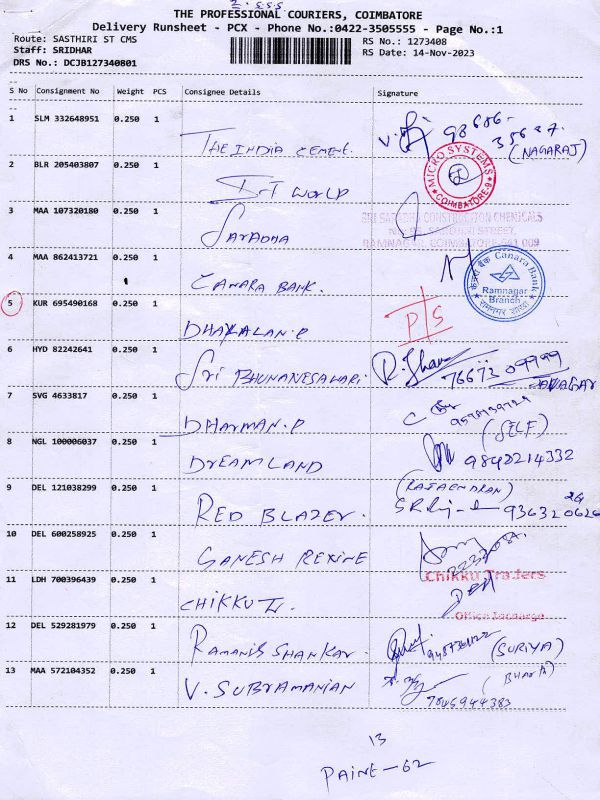 THE PROFESSIONAL COURIERS, COIMBATORE
Delivery Runsheet - PCX - Phone No.:0422-3505555 - Page No.:1
Route: SASTHIRI ST CMS
RS No.: 1273408
Staff: SRIDHAR
RS Date: 14-Nov-2023
DRS No.: DCJB127340801
S No Consignment No Weight PCS Consignee Details Signature
1 SLM 332648951 0.250 1 THE INDIA CEMENT. 98686-
(NAGARAJ)
2 BLR 205403807 0.250 1 WORLD MICRO SYSTEMS
COIMBATORE-9
3 MAA 107320180 0.250 1 Saradha SRI SARADHA CONSTRUCTION CHEMICALS
RAMNAGAR, COIMBATORE-641 009
4 MAA 862413721 0.250 1 CANARA BANK. केनरा बैंक Canara Bank
Ramnagar
Branch
रामनगर शाखा
5 KUR 695490168 0.250 1 P/S
6 HYD 82242641 0.250 1 Sri BHUVANESAWARI. 76673 09999
7 SVG 4633817 0.250 1 DHARMAN.P
(SELF)
8 NGL 100006037 0.250 1 DREAMLAND 9842214332
(RAJAENDRAN)
9 DEL 121038299 0.250 1 RED BLAZER.
10 DEL 600258925 0.250 1 GANESH REXINE
11 LDH 700396439 0.250 1 CHIKKU Tr. Chikku Traders
Office Incharge
12 DEL 529281979 0.250 1 RAMANIS SHANKAR. (SURIYA)
13 MAA 572104352 0.250 1 V. SUBRAMANIAN
7845944383
13
PAINE-62